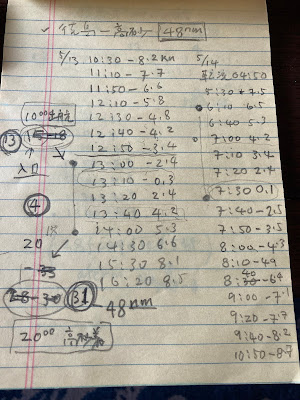 48nm
5/13 10:30 - 8.2 kn
11:10 - 7.7
11:50 - 6.6
12:10 - 5.8
12:30 - 4.8
12:40 - 4.2
12:50 - 3.4
13:00 - 2.4
13:10 - 0.3
13:20 2.4
13:40 4.2
14:00 5.3
14:30 6.6
15:30 8.1
16:20 8.5
48nm
1000
13
入口
4
20
31
2000
5/14
04:50
5:30 + 7.5
6:10 6.5
6:40 5.3
7:00 4.2
7:10 3.4
7:20 2.4
7:30 0.1
7:40 - 2.5
7:50 - 3.5
8:00 - 4.3
8:10 - 4.9
8:40 - 6.4
9:00 - 7.1
9:20 - 7.7
9:40 - 8.2
10:50 - 8.7